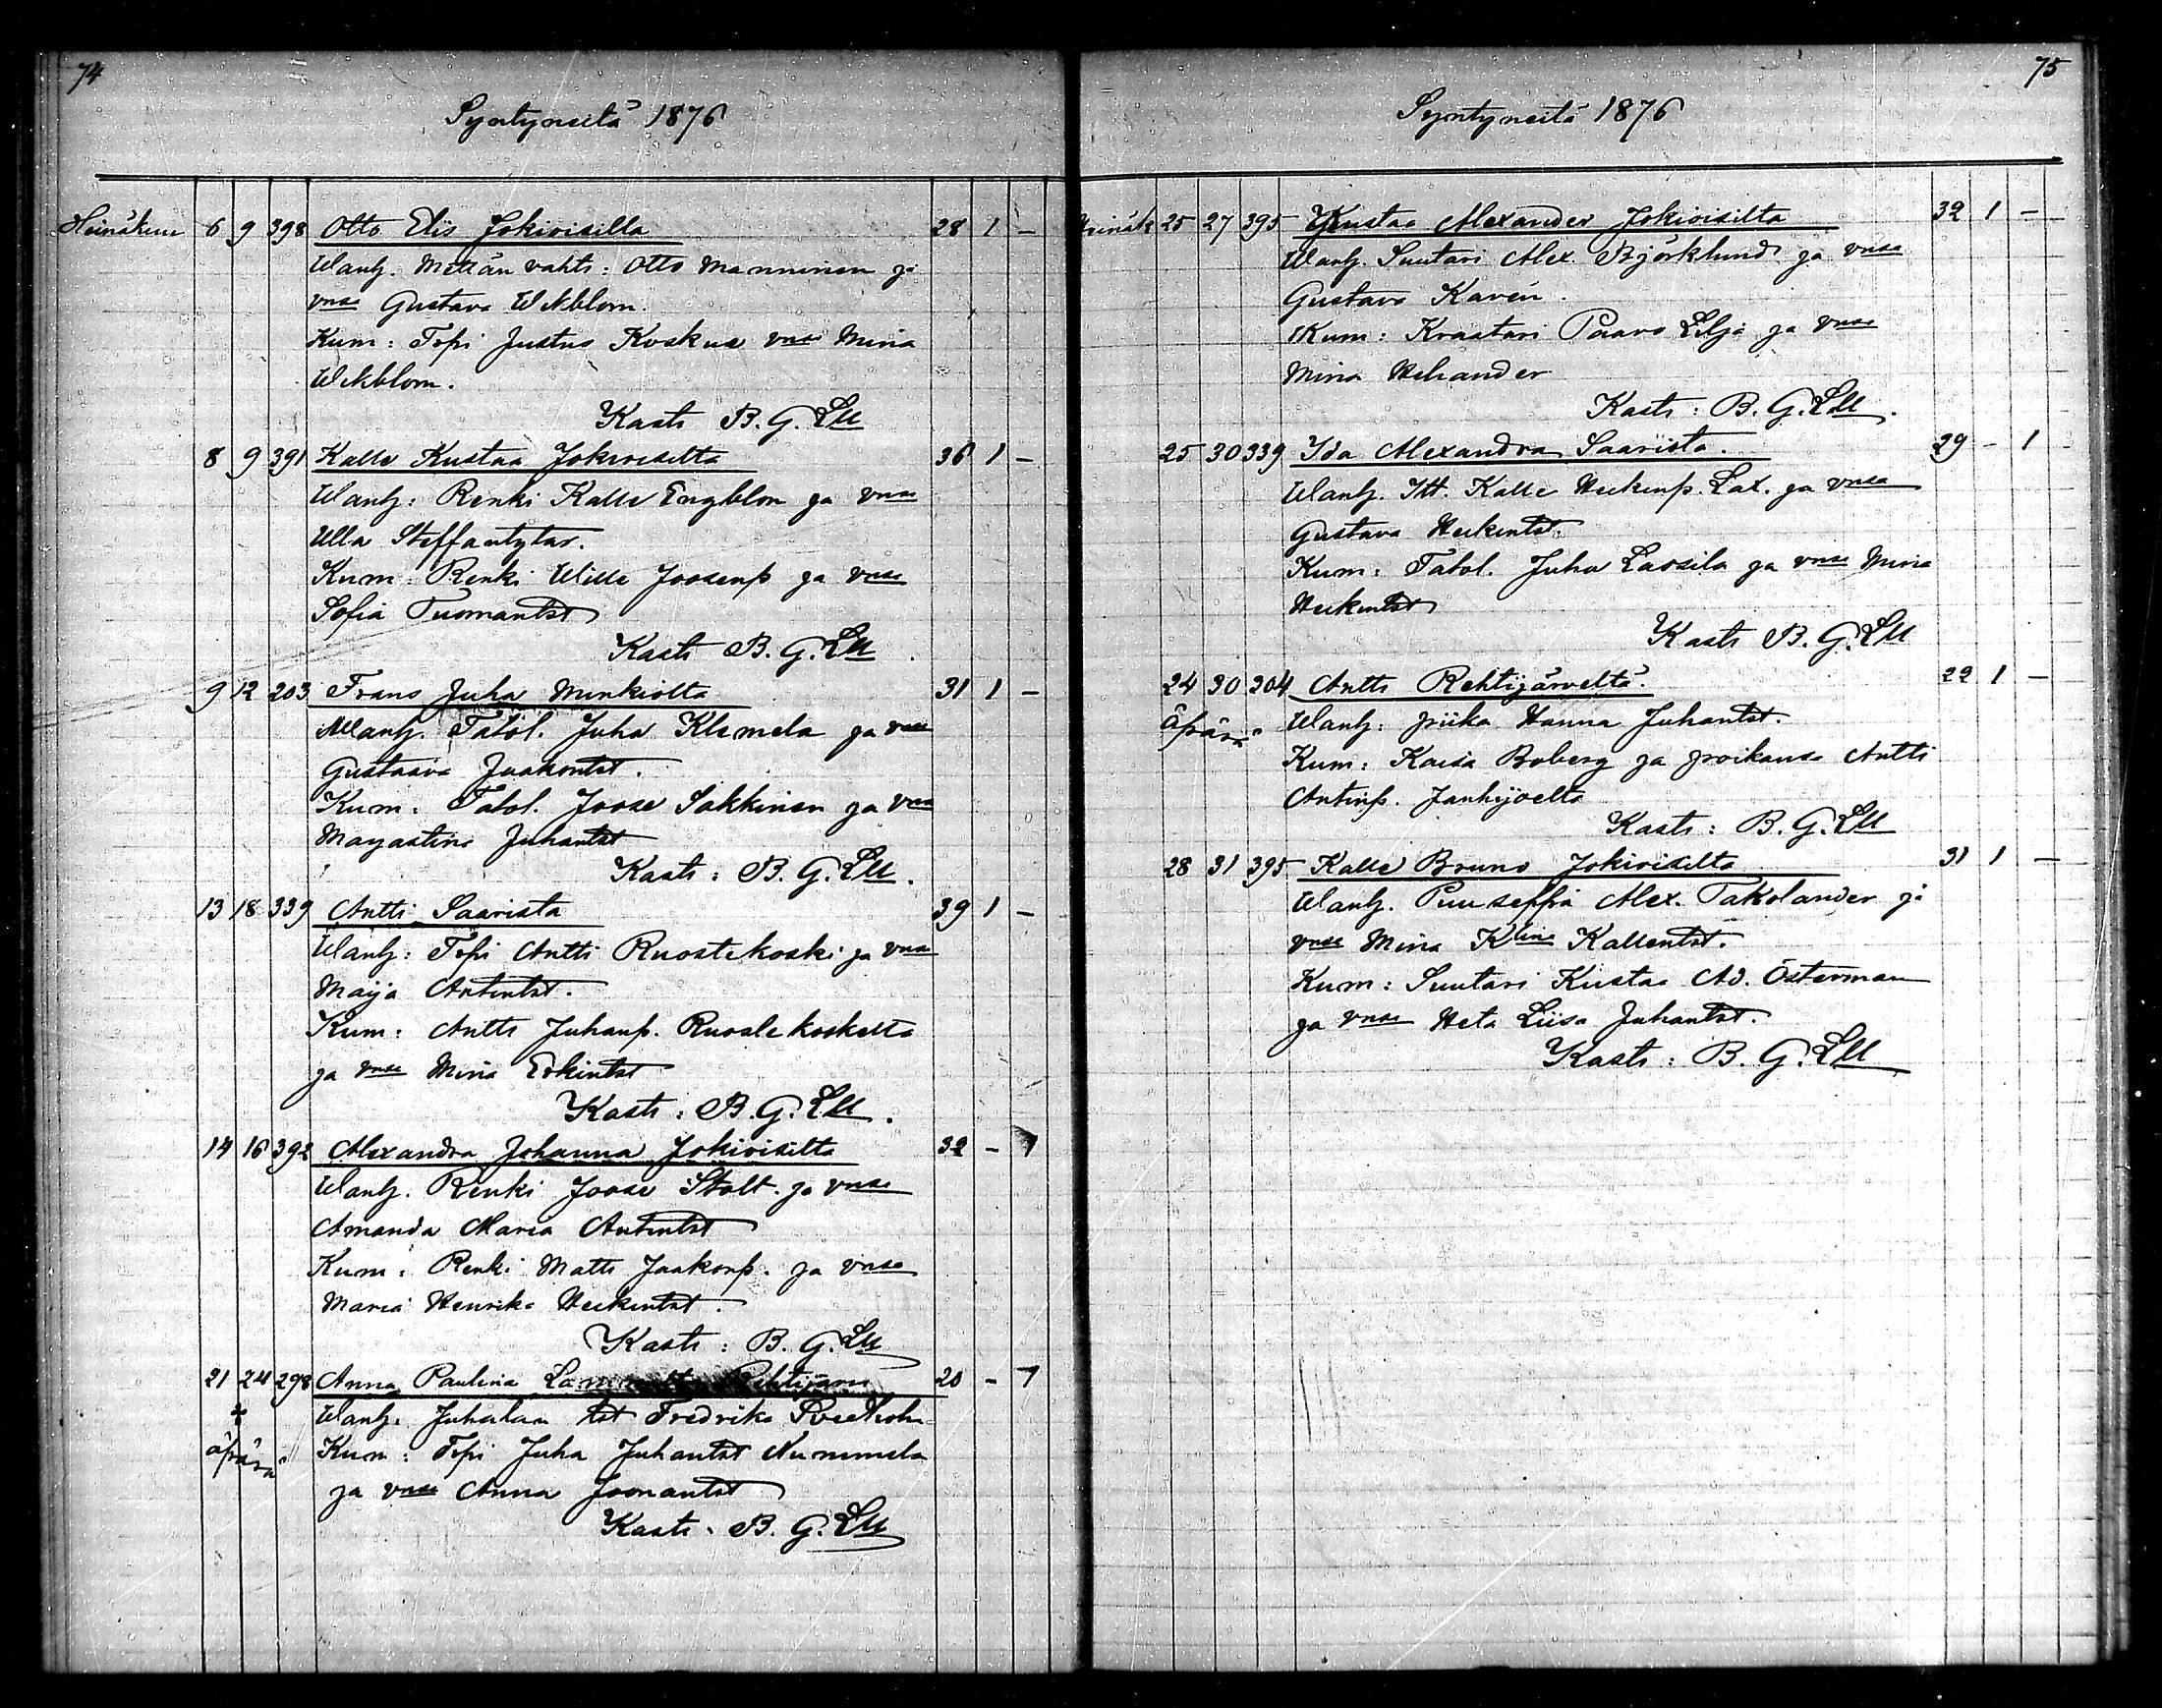 74
Syntyneitä 1876
Heinäkuu 6 9 398 Otto Elis Jokioisilla 28 1 –
Wanh. Metsän vahti: Otto Manninen ja
vmsa Gustava Wikblom.
Kum: Topi Justus Koskue vmsa Mina
Wikblom.
Kasti B. G. Lll
8 9 391 Kalle Kustaa Jokioisilta 36 1 –
Wanh: Renki Kalle Engblom ja vmsa
Ulla Steffantytar.
Kum: Renki Wille Joosenp ja vmsa
Sofia Tuomantst
Kasti B. G. Lll
9 12 203 Frans Juha Minkiolta 31 1 –
Wanh. Talol. Juha Klemela ja vmsa
Gustaava Jaakontst.
Kum: Talol. Joose Sakkinen ja vmsa
Majastina Juhantst
Kasti: B. G. Lll.
13 18 339 Antti Saarista 39 1 –
Wanh: Topi Antti Ruostekoski ja vmsa
Maija Antintst.
Kum: Antti Juhanp. Ruostekoskelta
ja vmsa Mina Erkintst
Kasti: B. G. Lll.
14 16 392 Alexandra Johanna Jokioisilta 32 – 1
Wanh. Renki Joose Stolt. ja vmsa
Amanda Maria Antintst
Kum: Renki Matti Jaakonp. ja vmsa
Maria Henrika Heikintst.
Kasti: B. G. Lll
21 24 298 Anna Paulina Rehtijärvi 20 – 1
† Wanh. tst Fredrika
äpärä Kum: Topi Juha Juhantst Nummela
ja vmsa Anna Joonantst
Kasti. B. G. Lll
75
Syntyneitä 1876
Heinäk 25 27 395 Kustaa Alexander Jokioisilta 32 1 –
Wanh. Suutari Alex. Björklund ja vmsa
Gustava Kavén.
Kum: Kraatari Paavo Lilja ja vmsa
Mina Helander
Kasti: B. G. Lll.
25 30 339 Ida Alexandra Saarista. 29 – 1
Wanh. Itt. Kalle Heikinp. Lax. ja vmsa
Gustava Heikintst.
Kum: Talol. Juha Lassila ja vmsa Mina
Heikintst
Kasti B. G. Lll
24 30 304 Antti Rehtijärveltä. 22 1 –
Äpärä Wanh: piika Hanna Juhantst.
Kum: Kaisa Boberg ja poikansa Antti
Antinp. Janhijoelta
Kasti: B. G. Lll
28 31 395 Kalle Bruno Jokioisilta 31 1 –
Wanh. Puuseppä Alex. Takolander ja
vmsa Mina Klina Kallentst.
Kum: Suutari Kustaa Ad. Österman
ja vmsa Heta Liisa Juhantst.
Kasti: B. G. Lll